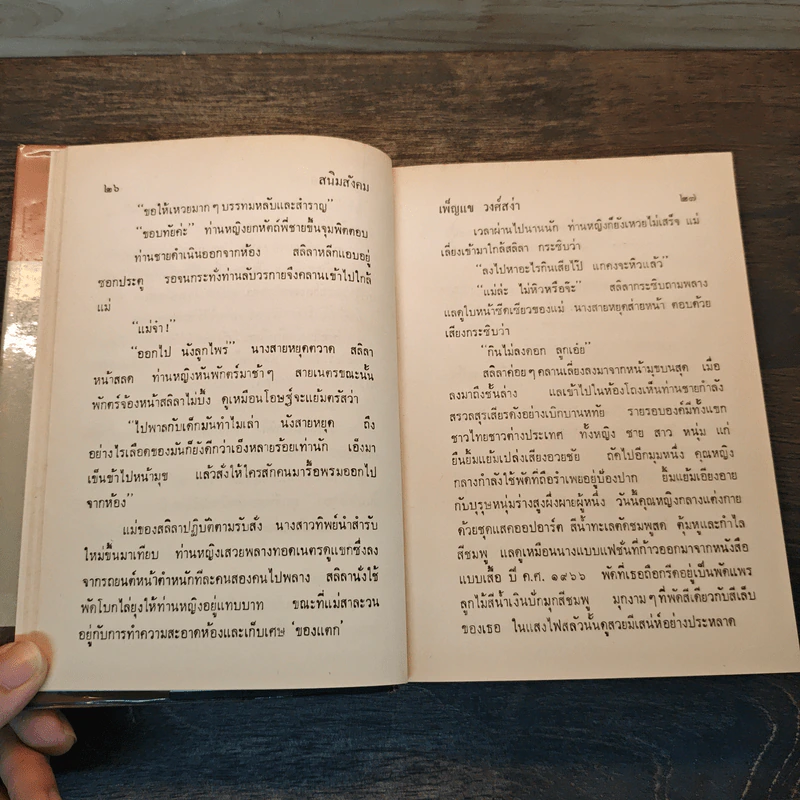 ๒๖ สนิมสังคม
“ขอให้เหวยมาก ๆ บรรทมหลับและสำราญ”
“ขอบทัยค่ะ” ท่านหญิงยกหัตถ์พี่ชายขึ้นจุมพิตตอบ
ท่านชายดำเนินออกจากห้อง สลิลาหลีกแอบอยู่
ซอกประตู รอจนกระทั่งท่านลับวรกายจึงคลานเข้าไปใกล้
แม่
“แม่จ๋า!”
“ออกไป นังลูกไพร่” นางสายหยุดตวาด สลิลา
หน้าสลด ท่านหญิงหันพักตร์มาช้า ๆ สายเนตรขณะนั้น
พักตร์จ้องหน้าสลิลาไม่บึ้ง ดูเหมือนโอษฐ์จะแย้มตรัสว่า
“ไปพาลกับเด็กมันทำไมเล่า นังสายหยุด ถึง
อย่างไรเลือดของมันก็ยังดีกว่าเอ็งหลายร้อยเท่านัก เอ็งมา
เข็นข้าไปหน้ามุข แล้วสั่งให้ใครสักคนมารื้อพรมออกไป
จากห้อง”
แม่ของสลิลาปฏิบัติตามรับสั่ง นางสาวทิพย์นำสำรับ
ใหม่ขึ้นมาเทียบ ท่านหญิงเสวยพลางทอดเนตรดูแขกซึ่งลง
จากรถยนต์หน้าตำหนักทีละคนสองคนไปพลาง สลิลานั่งใช้
พัดโบกไล่ยุงให้ท่านหญิงอยู่แทบบาท ขณะที่แม่สาละวน
อยู่กับการทำความสะอาดห้องและเก็บเศษ ‘ของแตก’
เพ็ญแข วงศ์สง่า ๒๗
เวลาผ่านไปนานนัก ท่านหญิงก็ยังเหวอไม่เสร็จ แม่
เลี่ยงเข้ามาใกล้สลิลา กระซิบว่า
“ลงไปหาอะไรกินเสียไป๊ แกคงจะหิวแล้ว”
“แม่ล่ะ ไม่หิวหรือจ๊ะ” สลิลากระซิบถามพลาง
แลดูใบหน้าซีดเซียวของแม่ นางสายหยุดส่ายหน้า ตอบด้วย
เสียงกระซิบว่า
“กินไม่ลงดอก ลูกเอ๋ย”
สลิลาค่อย ๆ คลานเลี่ยงลงมาจากหน้ามุขบนสุด เมื่อ
ลงมาถึงชั้นล่าง แลเข้าไปในห้องโถงเห็นท่านชายกำลัง
สรวลสุรเสียงดังอย่างเบิกบานหทัย รายรอบองค์มีทั้งแขก
ชาวไทยชาวต่างประเทศ ทั้งหญิง ชาย สาว หนุ่ม แก่
ยืนยิ้มแย้มเปล่งเสียงอวยชัย ถัดไปอีกมุมหนึ่ง คุณหญิง
กลางกำลังใช้พัดที่ถือรำเพยอยู่ป้องปาก ยิ้มแย้มเอียงอาย
กับบุรุษหนุ่มร่างสูงผึ่งผายผู้หนึ่ง วันนี้คุณหญิงกลางแต่งกาย
ด้วยชุดแสคออปอาร์ต สีน้ำทะเลตัดชมพูสด ตุ้มหูและกำไล
สีชมพู แลดูเหมือนนางแบบแฟชั่นที่ก้าวออกมาจากหนังสือ
แบบเสื้อ ปี ค.ศ. ๑๙๖๖ พัดที่เธอถือกรีดอยู่เป็นพัดแพร
ลูกไม้สีน้ำเงินปักมุกสีชมพู มุกงาม ๆ ที่พัดสีเดียวกับสีเล็บ
ของเธอ ในแสงไฟสลัวนั้นดูสวยมีเสน่ห์อย่างประหลาด